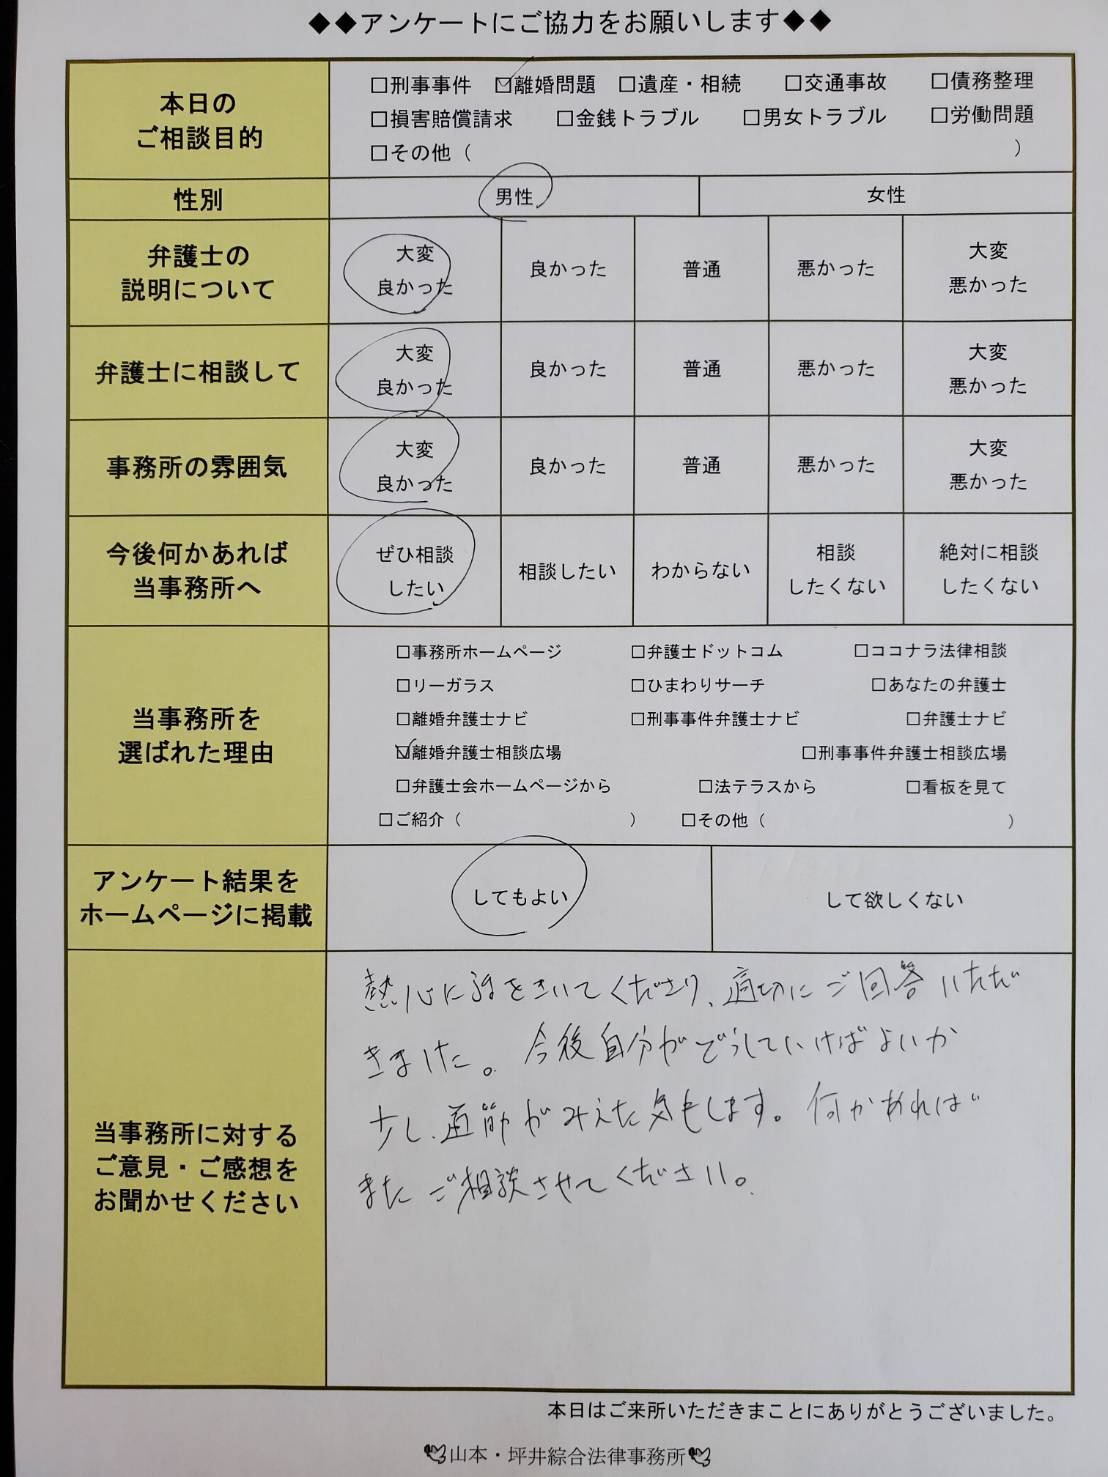 ◆◆アンケートにご協力をお願いします◆◆
本日の
ご相談目的
□刑事事件 ☑離婚問題 □遺産・相続 □交通事故 □債務整理
□損害賠償請求 □金銭トラブル □男女トラブル □労働問題
□その他（ ）
性別 男性 女性
弁護士の
説明について
大変
良かった
良かった
普通
悪かった
大変
悪かった
弁護士に相談して
大変
良かった
良かった
普通
悪かった
大変
悪かった
事務所の雰囲気
大変
良かった
良かった
普通
悪かった
大変
悪かった
今後何かあれば
当事務所へ
ぜひ相談
したい
相談したい
わからない
相談
したくない
絶対に相談
したくない
当事務所を
選ばれた理由
□事務所ホームページ □弁護士ドットコム □ココナラ法律相談
□リーガラス □ひまわりサーチ □あなたの弁護士
□離婚弁護士ナビ □刑事事件弁護士ナビ □弁護士ナビ
☑離婚弁護士相談広場 □刑事事件弁護士相談広場
□弁護士会ホームページから □法テラスから □看板を見て
□ご紹介（ ） □その他（ ）
アンケート結果を
ホームページに掲載
してもよい
して欲しくない
当事務所に対する
ご意見・ご感想を
お聞かせください
熱心に話をきいてくださり、適切にご回答いただ
きました。今後自分がどうしていけばよいか
少し、道筋がみえた気もします。何かあれば
またご相談させてください。
本日はご来所いただきまことにありがとうございました。
山本・坪井綜合法律事務所